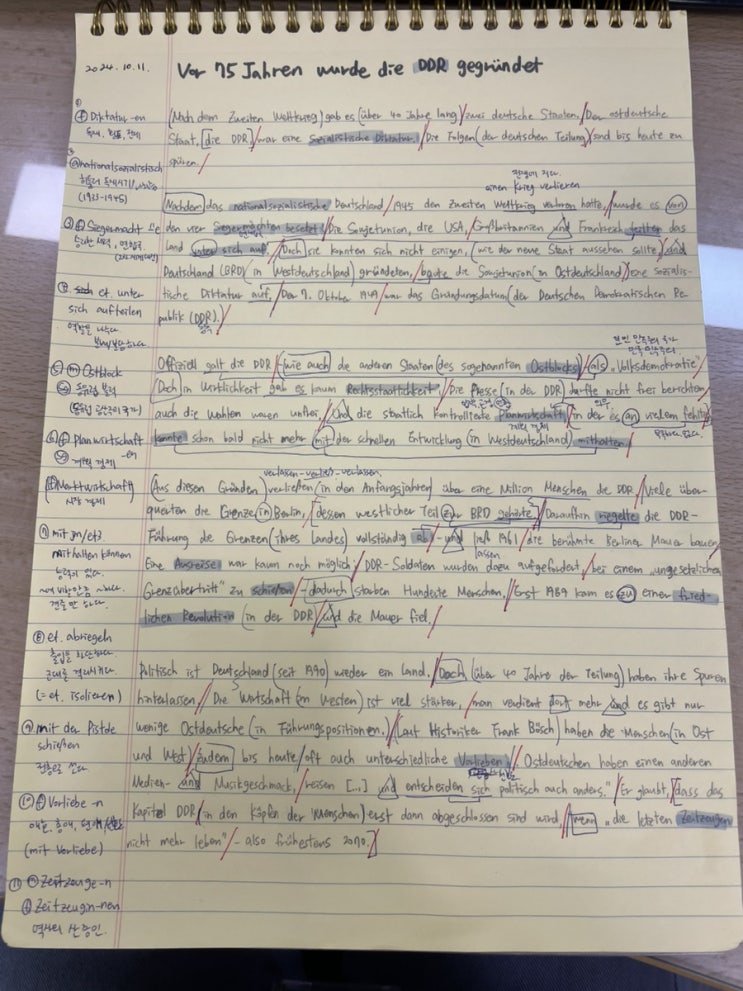 2024.10.11.
Vor 75 Jahren wurde die DDR gegründet
① ⓕ Diktatur -en
(Nach dem Zweiten Weltkrieg) gab es (über 40 Jahre lang) / zwei deutsche Staaten. / Der ostdeutsche
Staat, [die DDR] / war eine Sozialistische Diktatur. / Die Folgen (der deutschen Teilung) sind bis heute zu
spüren. /
nationalsozialistisch
(1933-1945)
전쟁에 지다.
einen Krieg verlieren
Nachdem das nationalsozialistische Deutschland / 1945 den zweiten Weltkrieg verloren hatte, / wurde es von
③ ⓕ Siegermacht
den vier Siegermächten besetzt. / Die Sowjetunion, die USA, Großbritannien und Frankreich teilten das
Land unter sich auf. / Doch sie konnten sich nicht einigen, (wie der neue Staat aussehen sollte) / und
Deutschland (BRD) (in Westdeutschland) gründeten, / baute die Sowjetunion (in Ostdeutschland) / eine sozialis-
④ sich et. unter
sich aufteilen
tische Diktatur auf. / Der 7. Oktober 1949 / war das Gründungsdatum (der Deutschen Demokratischen Re-
publik (DDR).) /
⑤ ⓜ Ostblock
동유럽 블럭
(동유럽 공산주의 국가)
Offiziell galt die DDR / (wie auch die anderen Staaten (des sogenannten Ostblocks) / als „Volksdemokratie" /
Doch in Wirklichkeit gab es kaum Rechtsstaatlichkeit. / Die Presse (in der DDR) durfte nicht frei berichten,
auch die Wahlen waren unfrei, / und die staatlich kontrollierte Planwirtschaft, / (in der es an vielem fehlte)
계획 경제
⑥ ⓕ Planwirtschaft -en
계획 경제
konnte schon bald nicht mehr mit der schnellen Entwicklung (in Westdeutschland) mithalten. /
ⓕ Marktwirtschaft
시장 경제
verlassen-verließ-verlassen.
(Aus diesen Gründen) verließen (in den Anfangsjahren) über eine Million Menschen die DDR. / Viele über-
querten die Grenze (in Berlin, / [dessen westlicher Teil zur BRD gehörte.] / Daraufhin riegelte die DDR-
⑦ mit jm/et3.
mithalten können
Führung die Grenzen (ihres Landes) vollständig ab / - und ließ 1961 / die berühmte Berliner Mauer bauen.
lassen
Eine Ausreise war kaum noch möglich. / DDR-Soldaten wurden dazu aufgefordert, / bei einem „ungesetzlichen
Grenzübertritt" zu schießen / - dadurch starben Hunderte Menschen. / Erst 1989 kam es zu einer fried-
lichen Revolution (in der DDR) / und die Mauer fiel. /
⑧ et. abriegeln
(= et. isolieren)
Politisch ist Deutschland (seit 1990) wieder ein Land. / Doch (über 40 Jahre der Teilung) haben ihre Spuren
hinterlassen. / Die Wirtschaft (im Westen) ist viel stärker, / man verdient dort mehr und es gibt nur
⑨ mit der Pistole
schießen
wenige Ostdeutsche (in Führungspositionen.) / (Laut Historiker Frank Bösch) haben die Menschen (in Ost
und West) / zudem bis heute / oft auch unterschiedliche Vorlieben. / „Ostdeutschen haben einen anderen
Medien- und Musikgeschmack, / reisen [...] und entscheiden sich politisch auch anders." / Er glaubt, [dass das
⑩ ⓕ Vorliebe -n
(mit Vorliebe)
Kapitel DDR (in den Köpfen der Menschen) erst dann abgeschlossen sind wird, / wenn „die letzten Zeitzeugen
nicht mehr leben" / - also frühestens 2070.]
⑪ ⓜ Zeitzeuge -n
ⓕ Zeitzeugin -nen
역사의 산 증인.